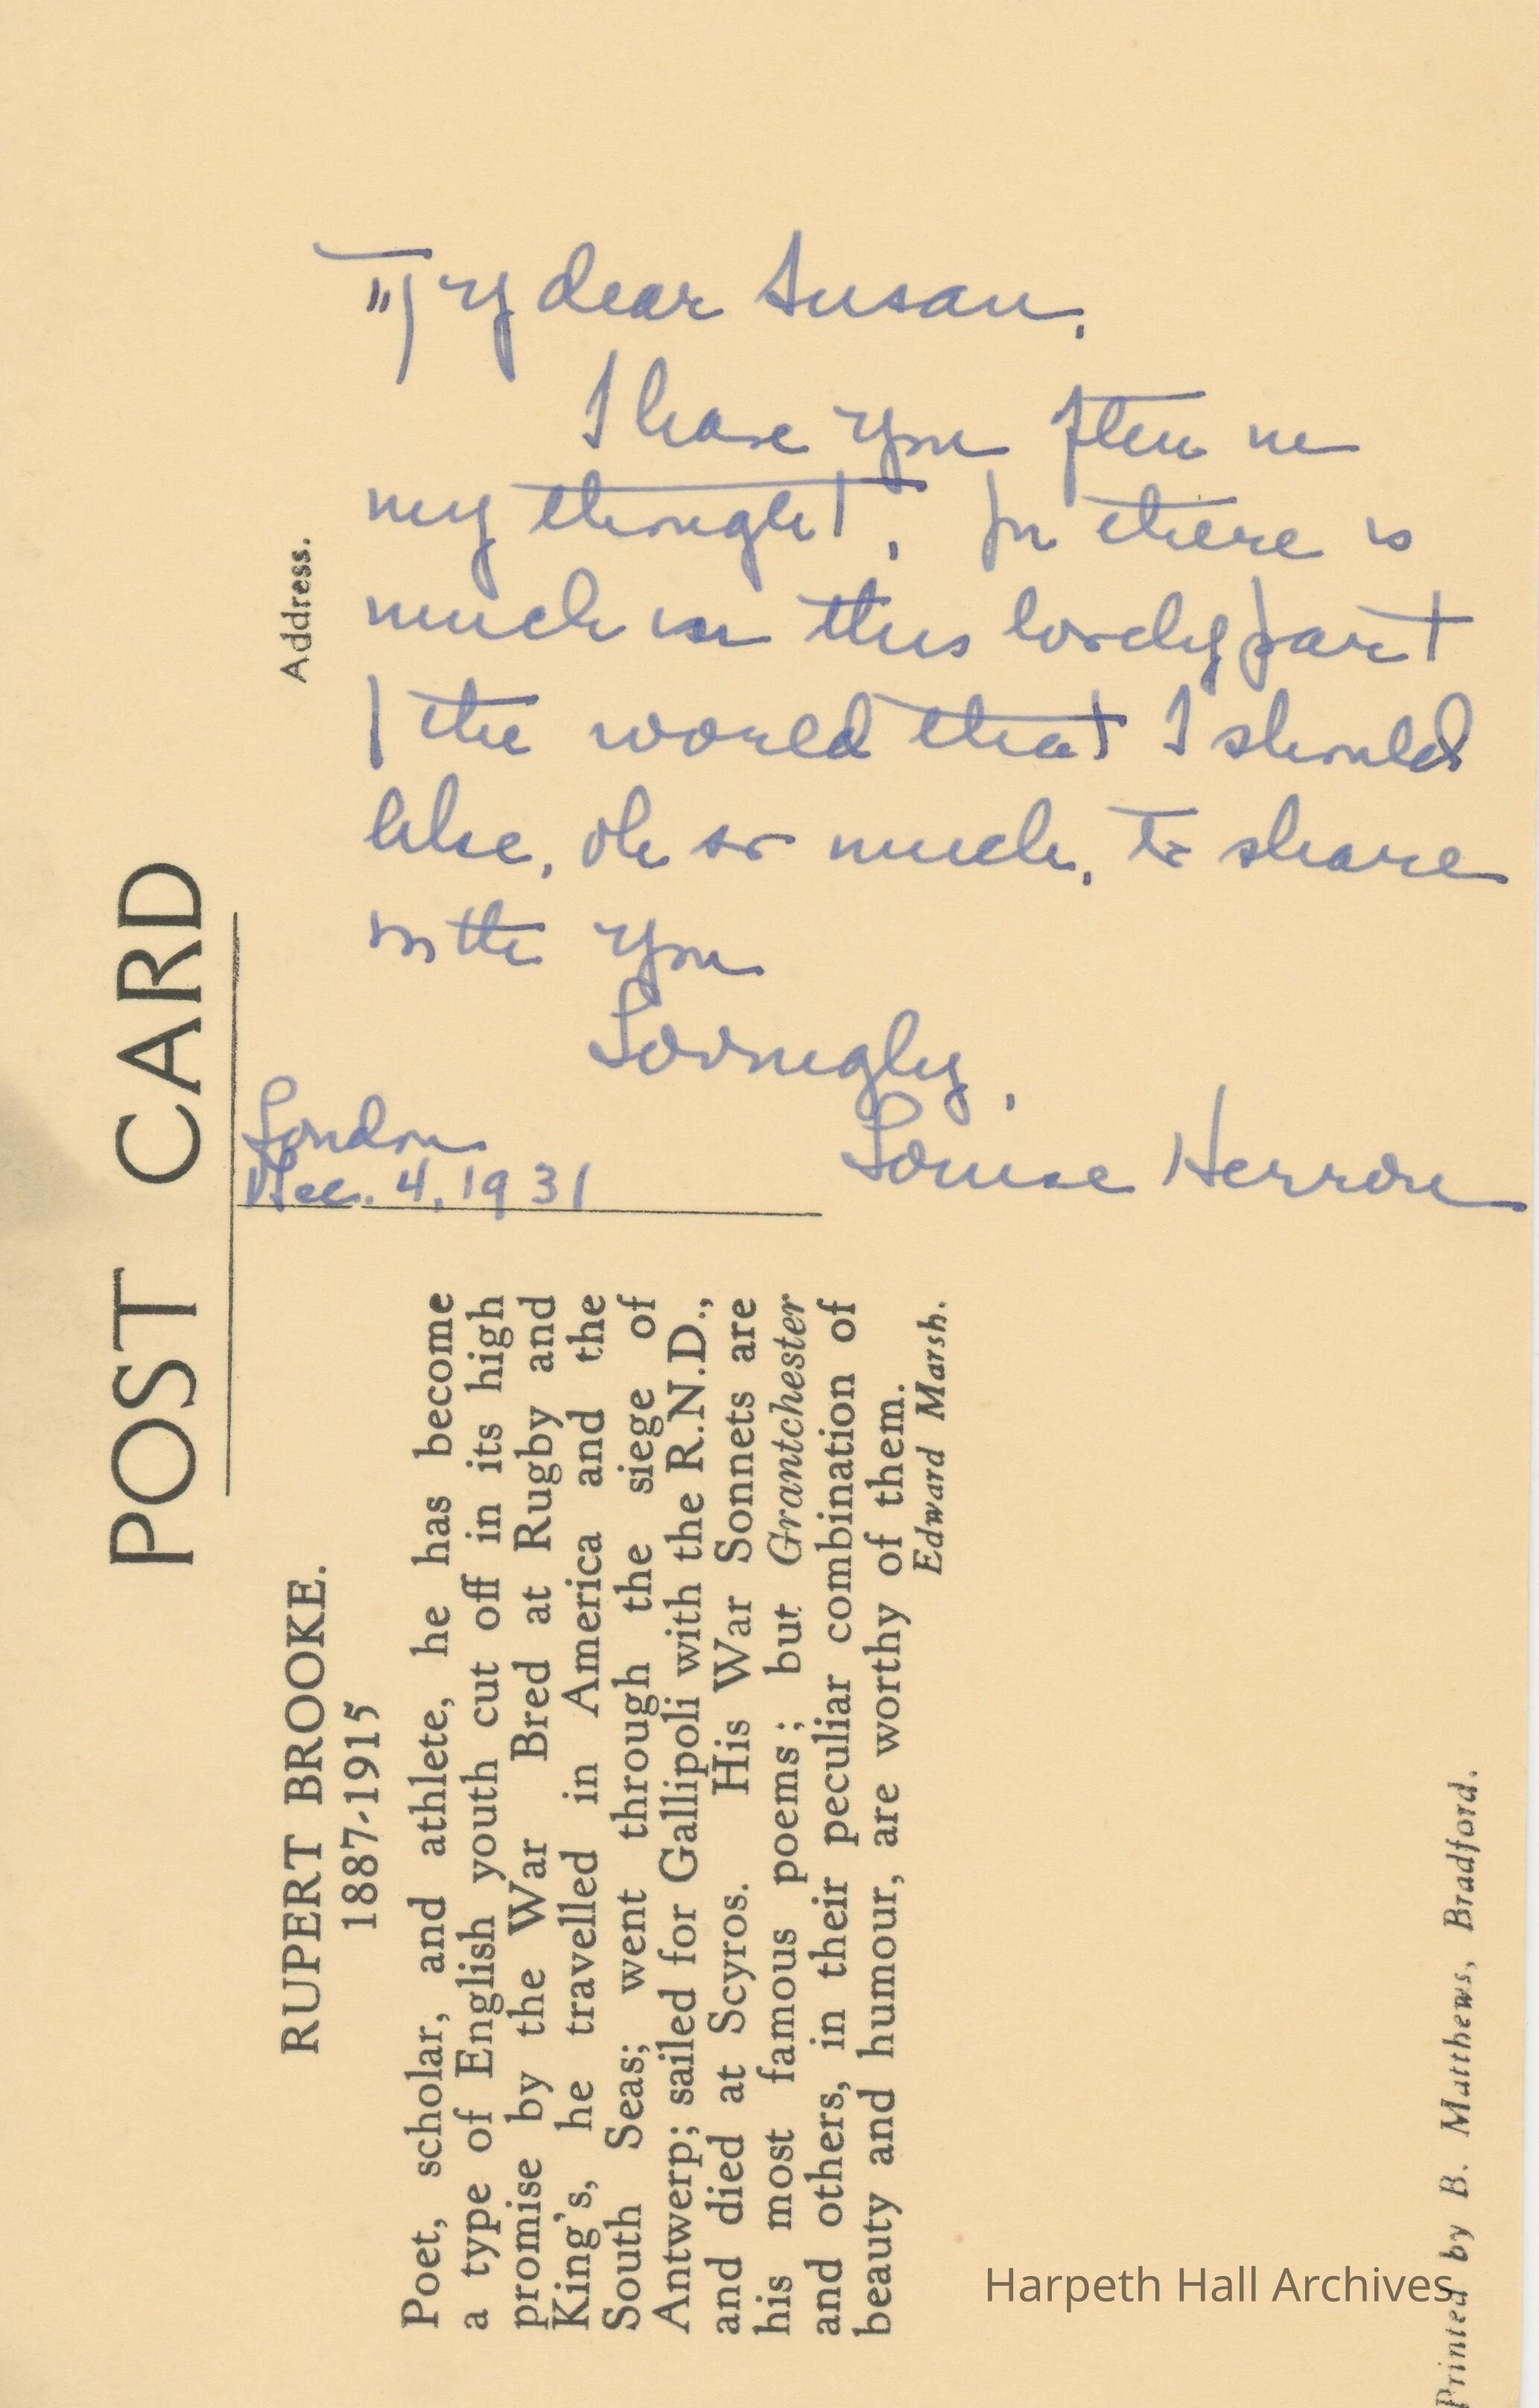 POST CARD
RUPERT BROOKE.
1887-1915
Poet, scholar, and athlete, he has become
a type of English youth cut off in its high
promise by the War Bred at Rugby and
King's, he travelled in America and the
South Seas; went through the siege of
Antwerp; sailed for Gallipoli with the R.N.D.,
and died at Scyros. His War Sonnets are
his most famous poems; but Grantchester
and others, in their peculiar combination of
beauty and humour, are worthy of them.
Edward Marsh.
Printed by B. Matthews, Bradford.
Address.
My dear Susan,
I have you often in
my thought, for there is
much in this lovely part
of the world that I should
like, oh so much, to share
with you
Lovingly,
Louise Herron
London
Dec. 4, 1931
Harpeth Hall Archives